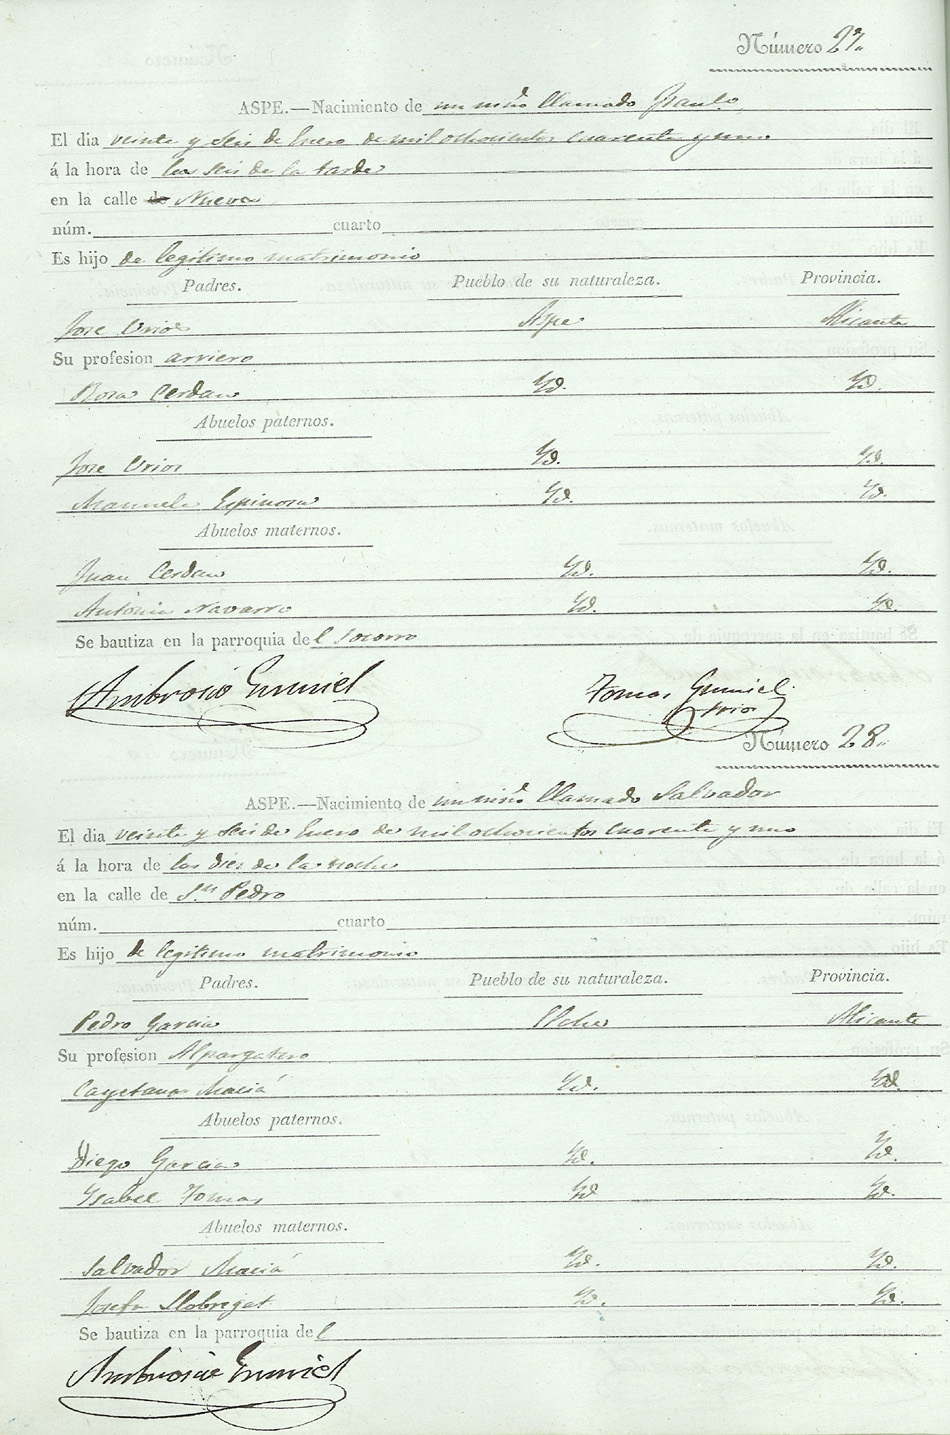 Número 27.
ASPE.—Nacimiento de un niño llamado
El dia veinte y seis de Enero de mil ochocientos cuarenta y uno
á la hora de las seis de la tarde
en la calle de Nueva
núm. cuarto
Es hijo de legitimo matrimonio
Padres. Pueblo de su naturaleza. Provincia.
Jose Urios Aspe Alicante
Su profesion arriero
Rosa Cerdan Yd. Yd.
Abuelos paternos.
Jose Urios Yd. Yd.
Manuela Espinosa Yd. Yd.
Abuelos maternos.
Juan Cerdan Yd. Yd.
Antonia Navarro Yd. Yd.
Se bautiza en la parroquia del Socorro
Ambrosio Tomas
Número 28.
ASPE.—Nacimiento de un niño llamado Salvador
El dia veinte y seis de Enero de mil ochocientos cuarenta y uno
á la hora de las diez de la noche
en la calle de Sn. Pedro
núm. cuarto
Es hijo de legitimo matrimonio
Padres. Pueblo de su naturaleza. Provincia.
Pedro Garcia Elche Alicante
Su profesion Alpargatero
Cayetana Maciá Yd. Yd.
Abuelos paternos.
Diego Garcia Yd. Yd.
Ysabel Tomas Yd. Yd.
Abuelos maternos.
Salvador Maciá Yd. Yd.
Josefa Llobregat Yd. Yd.
Se bautiza en la parroquia del
Ambrosio